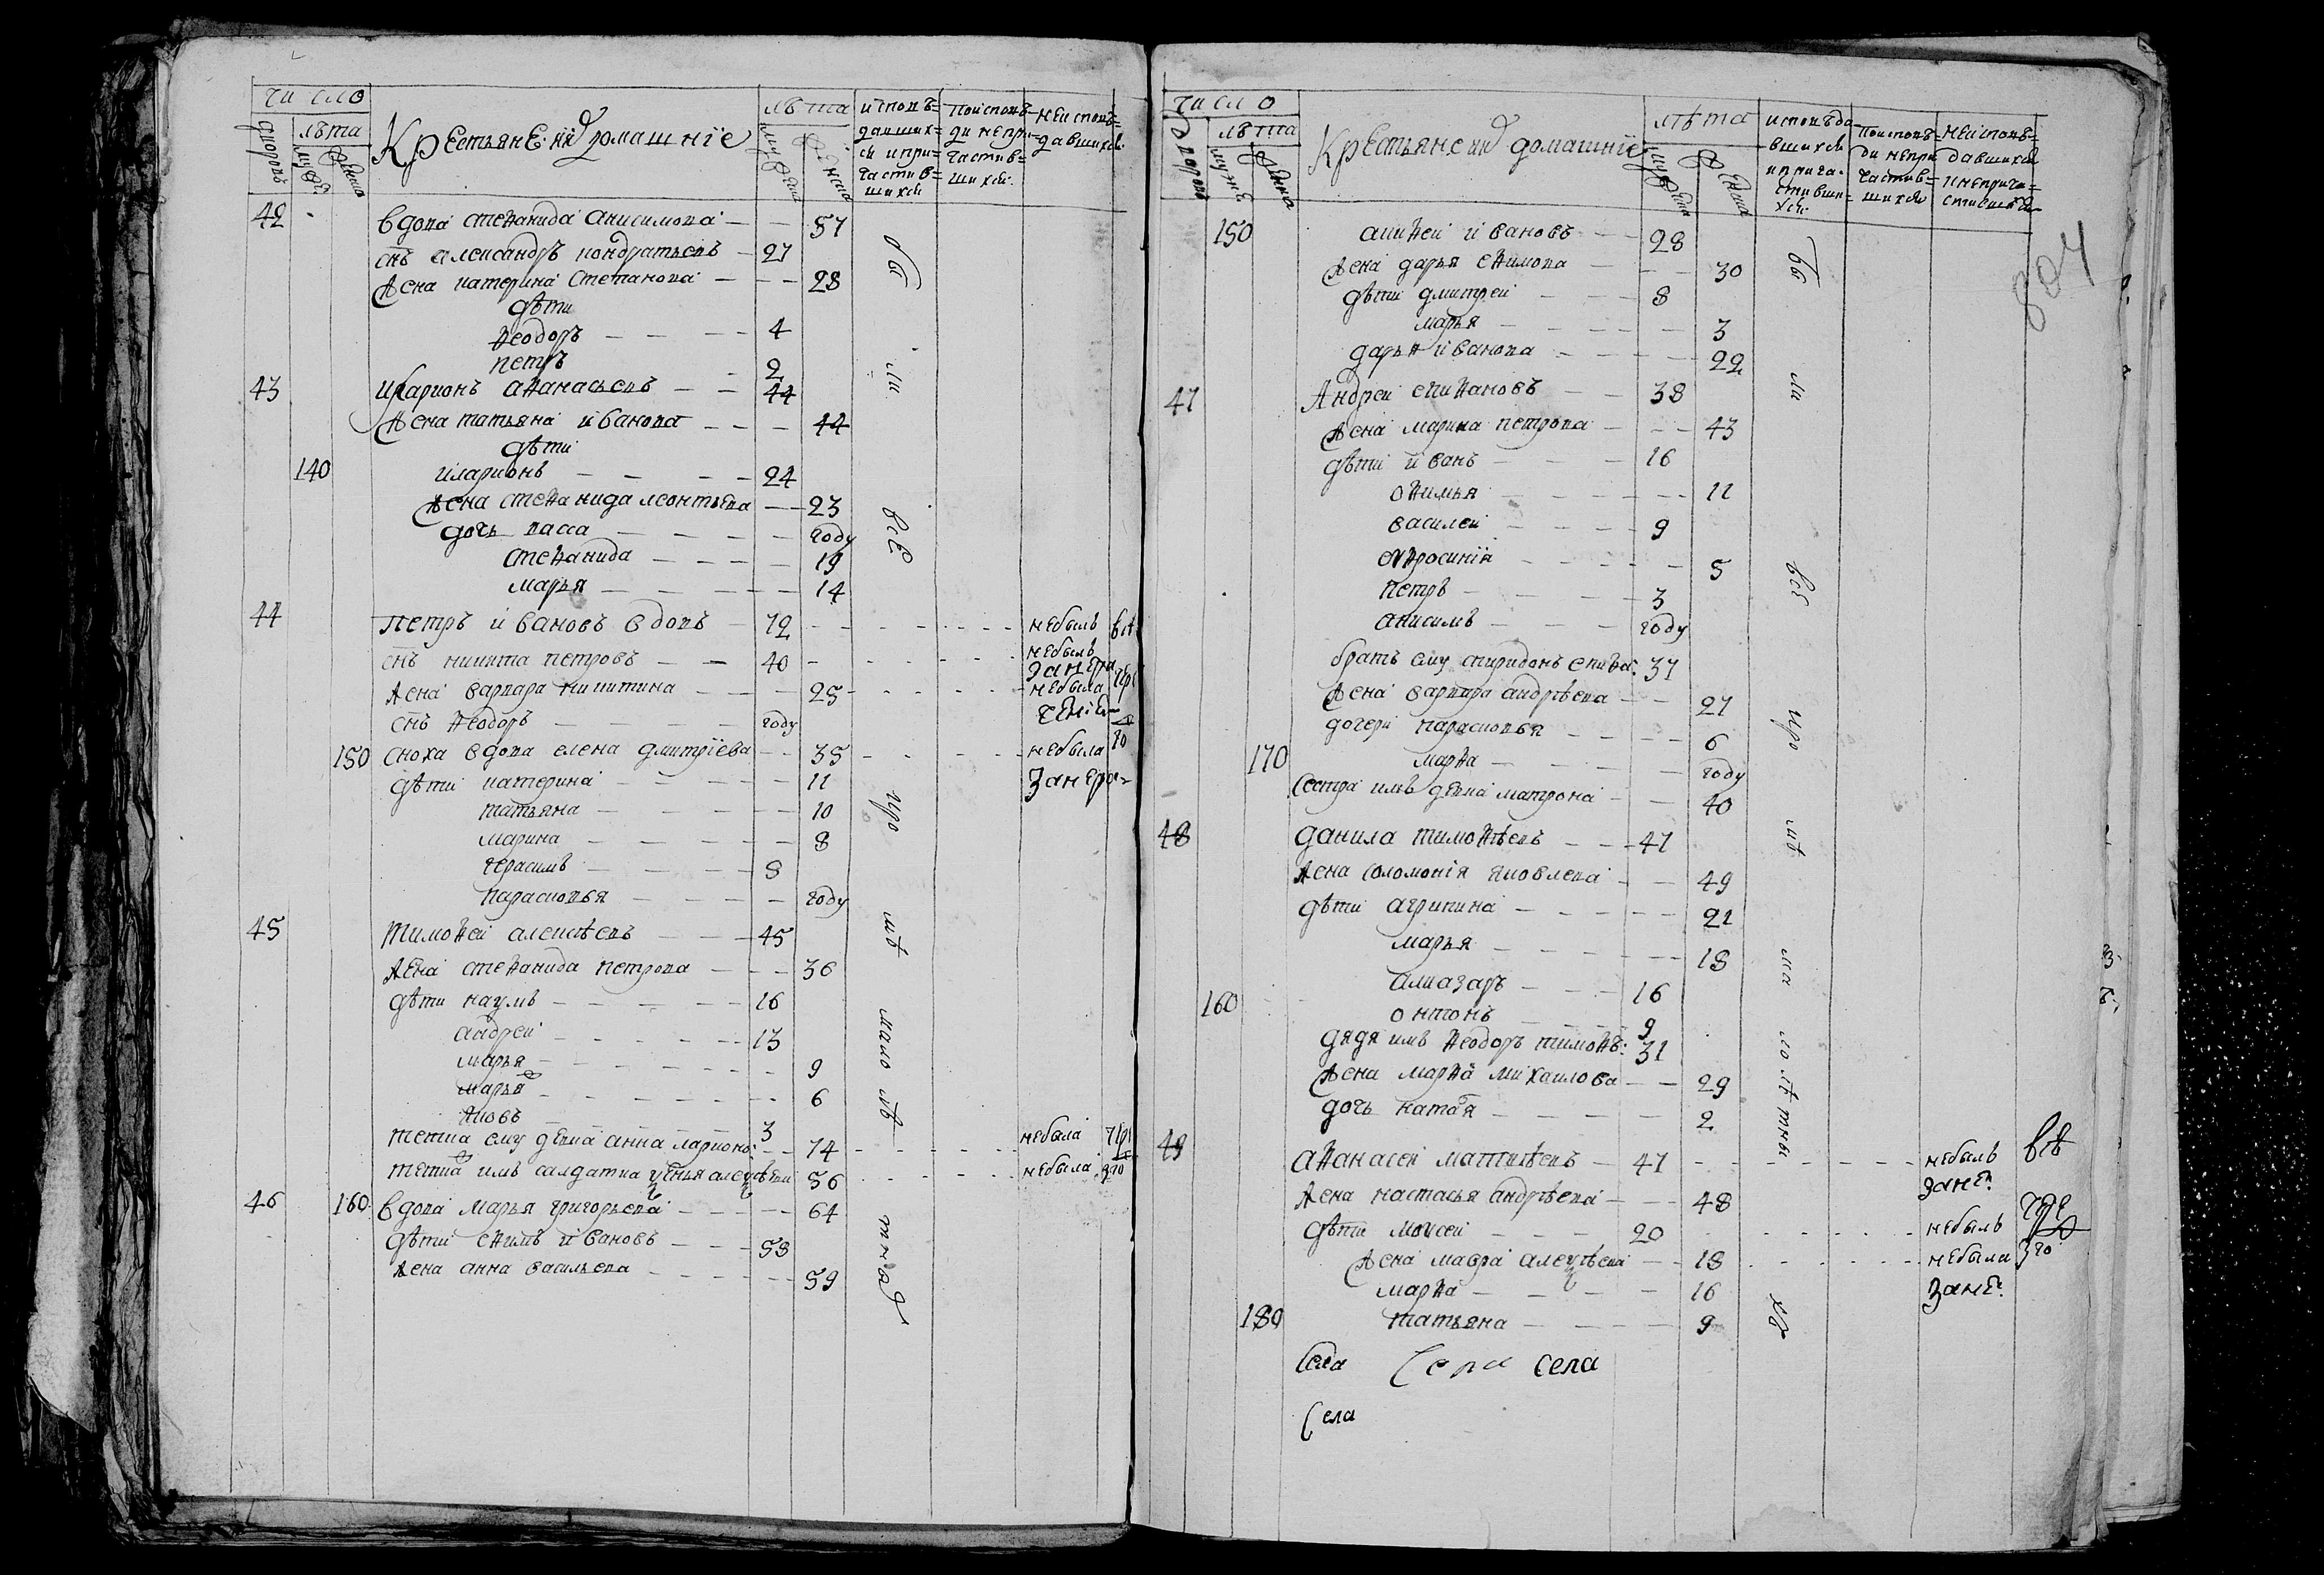 число
лѣта
дворовъ
мужс
женс
Крестьяне и ихъ домашнїе
лѣта
исповѣ=
давших=
ся и при=
частив=
шихся
поисповѣ=
ди непри=
частив=
шихся.
неисповѣ=
давшихся
42 вдова стефанида анисимова 57
снъ александръ кондратьевъ 27
жена катерина степанова 28
дѣти
феодоръ 4
петръ 2
43 иларионъ афанасьевъ 44
жена татьяна иванова 44
дѣти
140 иларионъ 24
жена стефанида леонтьева 23
дочь васса году
стефанида 19
марья 14
44 петръ ивановъ вдовъ 72 небылъ
снъ никита петровъ 40 небылъ
жена варвара никитина 25 небыла
снъ феодоръ году
150 сноха вдова елена дмитрїева 35 небыла
дѣти катерина 11
татьяна 10
марина 8
герасимъ 8
парасковья году
45 тимофей алексѣевъ 45
жена стефанида петрова 36
дѣти наумъ 16
андрей 13
марья 9
марья 6
яковъ 3
тетка ему девка анна ларионо: 74 небыла
тетка имъ салдатка 56 небыла
46 160 вдова марья григорьева 64
дѣти ефимъ ивановъ 58
жена анна васильева 59
бы
ли
всѣ
кро
мѣ
мало лѣ
тнад
число
дворовъ
лѣта
мужс
женс
Крестьяне ихъ домашнїе
лѣта
исповѣда
вшихся
и прича
стивши
хся
поисповѣ=
ди непри
частив=
шихся
неисповѣ=
давшихся
и неприча=
стившихся
807
150 аникей ивановъ 28
жена дарья ефимова 30
дѣти дмитрей 8
марья 3
дарья иванова 22
47 Андрей епифановъ 38
жена марина петрова 43
дѣти иванъ 16
офимья 11
василей 9
офросинїя 5
петръ 3
анисимъ году
братъ ему спиридонъ епифа: 37
жена варвара андрѣева 27
дочери парасковья 6
170 марфа году
сестра имъ девка матрона 40
48 данила тимофѣевъ 47
жена соломонїя яковлева 49
дѣти агрипина 21
марья 18
алиазаръ 16
160 онтонъ 9
дядя имъ феодоръ тимофѣ: 31
жена марфа михаилова 29
дочь ната я 2
49 афанасей матвѣевъ 47 небылъ
жена настасья андрѣева 48
дѣти мойсей 20 небылъ
жена мавра алексѣева 18 небыла
марфа 16
180 татьяна 9
бы
ли
всѣ
кро
мѣ
ма
лолѣ
тны
хъ
села села
села